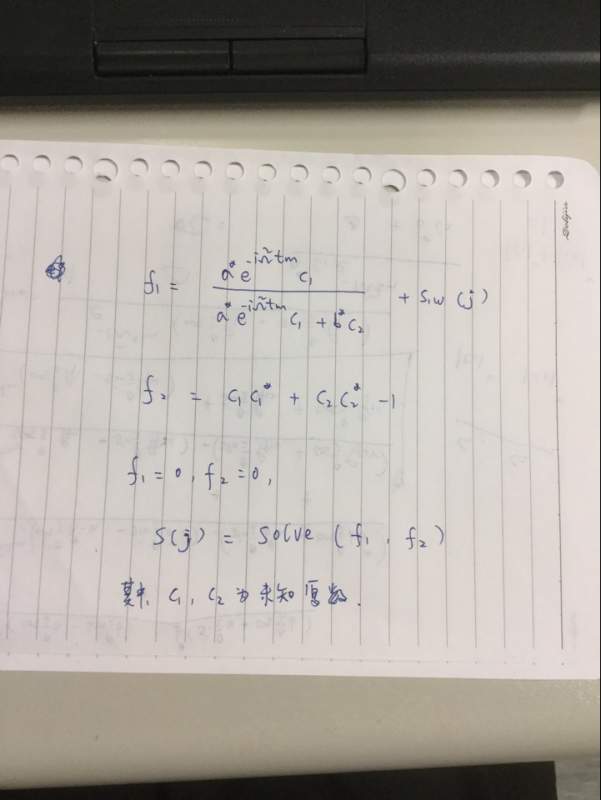 f₁ = a* e^{-iΩ̃tm} C₁ / (a* e^{-iΩ̃tm} C₁ + b* C₂) + S₁w (j)
f₂ = C₁ C₁* + C₂ C₂* - 1
f₁ = 0, f₂ = 0,
S(j) = Solve (f₁, f₂)
其中, C₁, C₂ 为未知复数.